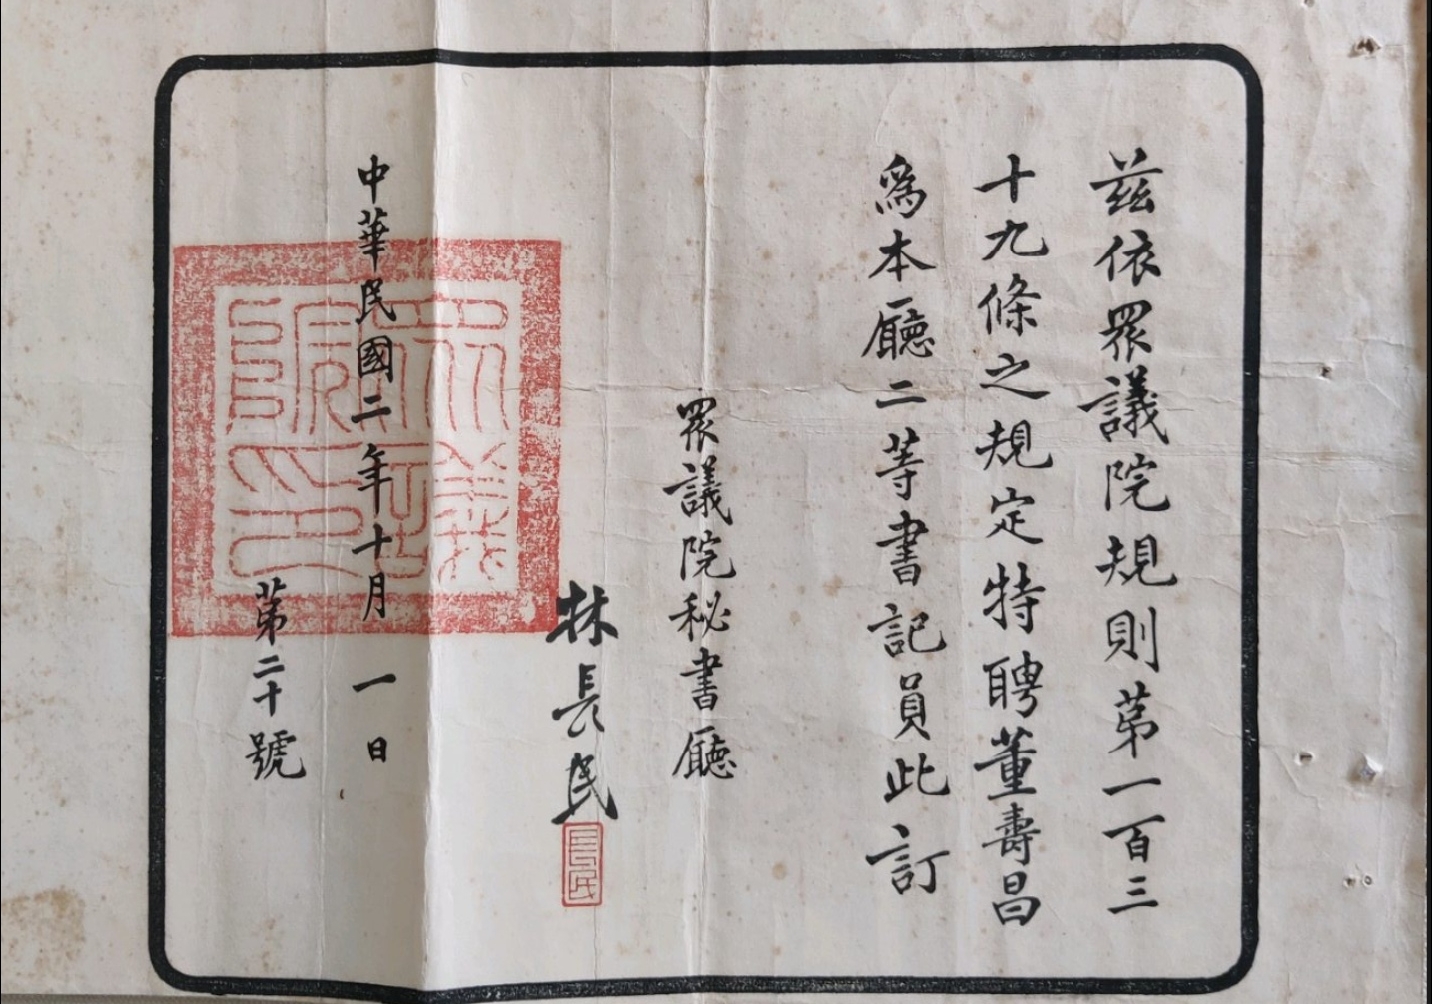 茲依眾議院規則第一百三
十九條之規定特聘董壽昌
為本廳二等書記員此訂
眾議院秘書廳
林長民
長民
中華民國二年十月一日
第二十號